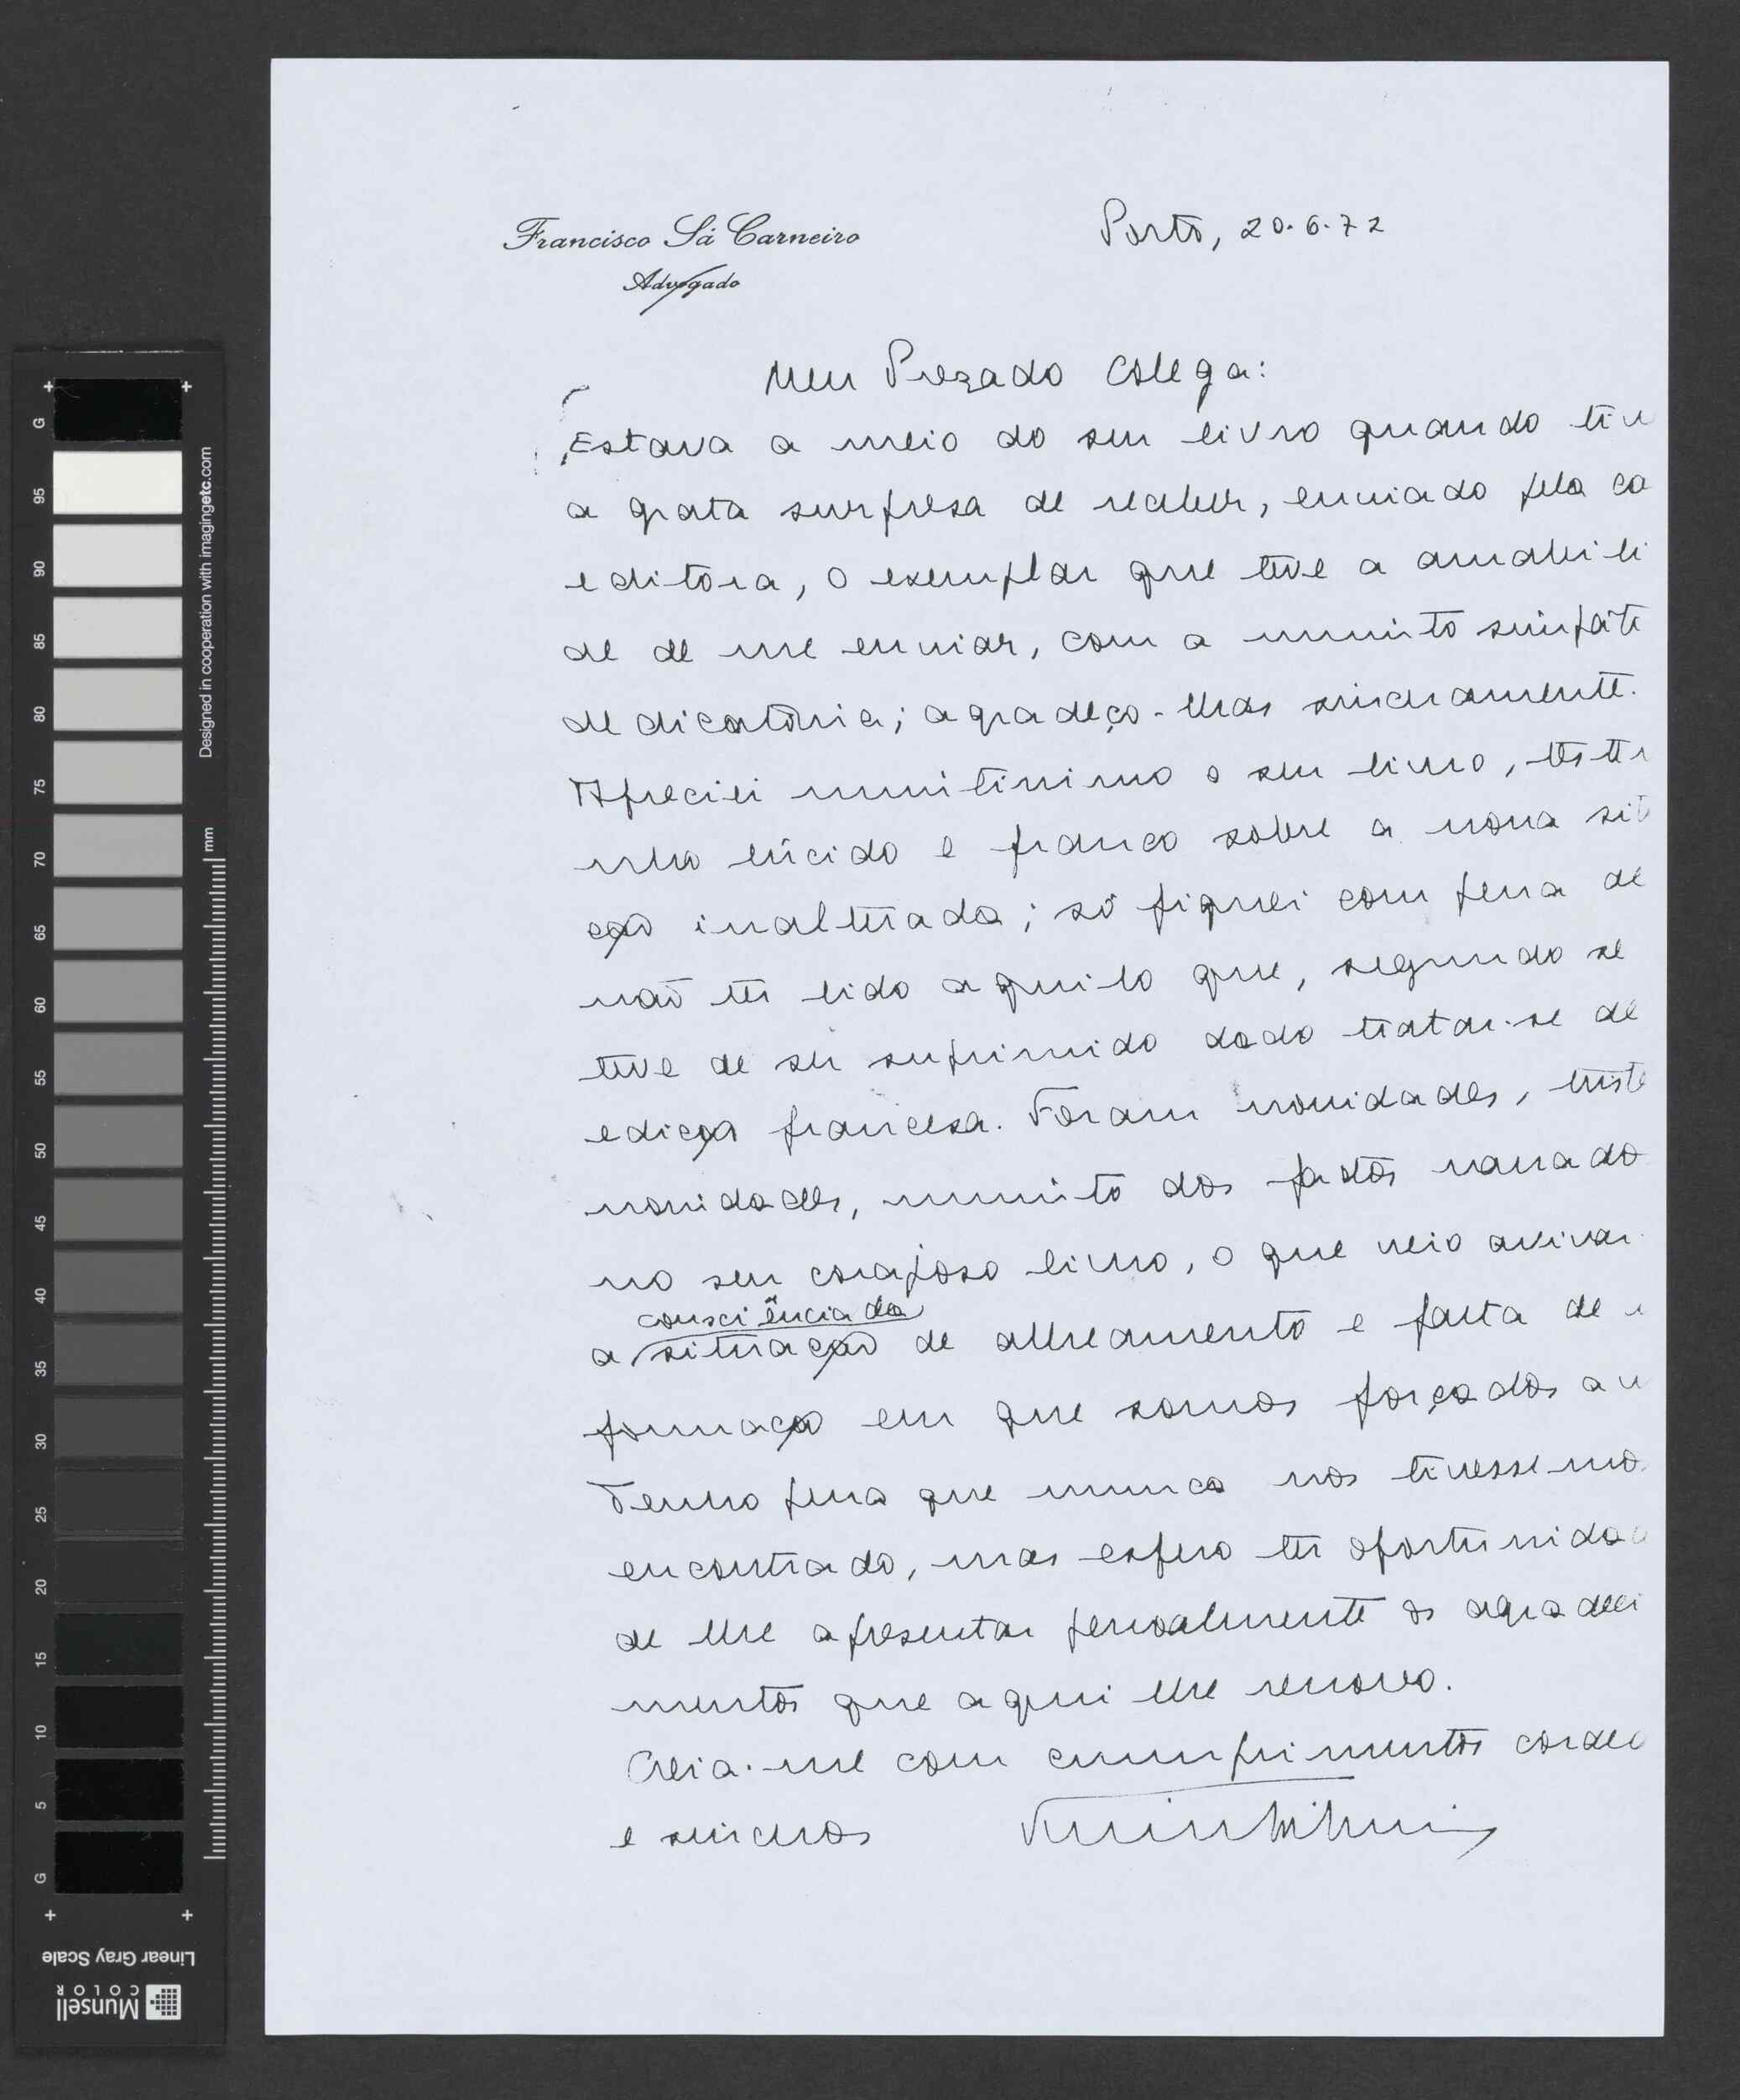 Francisco Sá Carneiro
Advogado
Porto, 20.6.72
Meu Prezado Colega:
Estava a meio do seu livro quando tiv
a grata surpresa de receber, enviado pela ca
editora, o exemplar que teve a amabili
de de me enviar, com a muito simpáti
dedicatória; agradeço-lhas sinceramente.
Apreciei muitíssimo o seu livro, teste
nho lúcido e franco sobre a nova sit
ção inalterada; só fiquei com pena de
não ter lido aquilo que, segundo se
teve de ser suprimido dado tratar-se de
edição francesa. Foram novidades, triste
novidades, muito dos factos narrado
no seu corajoso livro, o que veio avivar
consciência da
a situação de alheamento e falta de i
formação em que somos forçados a v
Tenho pena que nunca nos tivessemo
encontrado, mas espero ter oportunida
de lhe apresentar pessoalmente os agradeci
mentos que aqui lhe renovo.
Creia-me com cumprimentos cordea
e sinceros
G 95 90 85 80 75 70 65 60 55 50 45 40 35 30 25 20 15 10 5 G
Designed in cooperation with imagingetc.com
mm
Linear Gray Scale
Munsell
COLOR